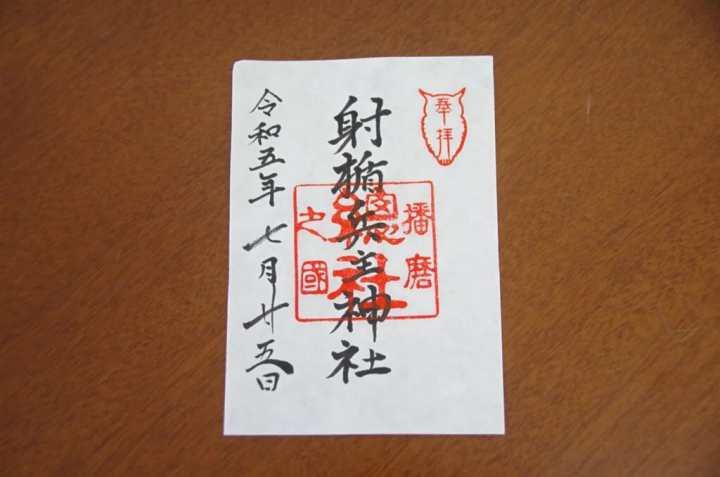 奉拝
播磨
總社
之國
射楯兵主神社
令和五年七月廿五日